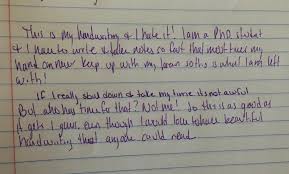 This is my handwriting & I hate it! I am a PhD student
& I have to write & take notes so fast that most times my
hand can never keep up with my brain so this is what I am left
with!
If I really slow down & take my time its not awful
But who has time for that? Not me! So this is as good as
it gets I guess. Even though I would love to have beautiful
handwriting that anyone could read